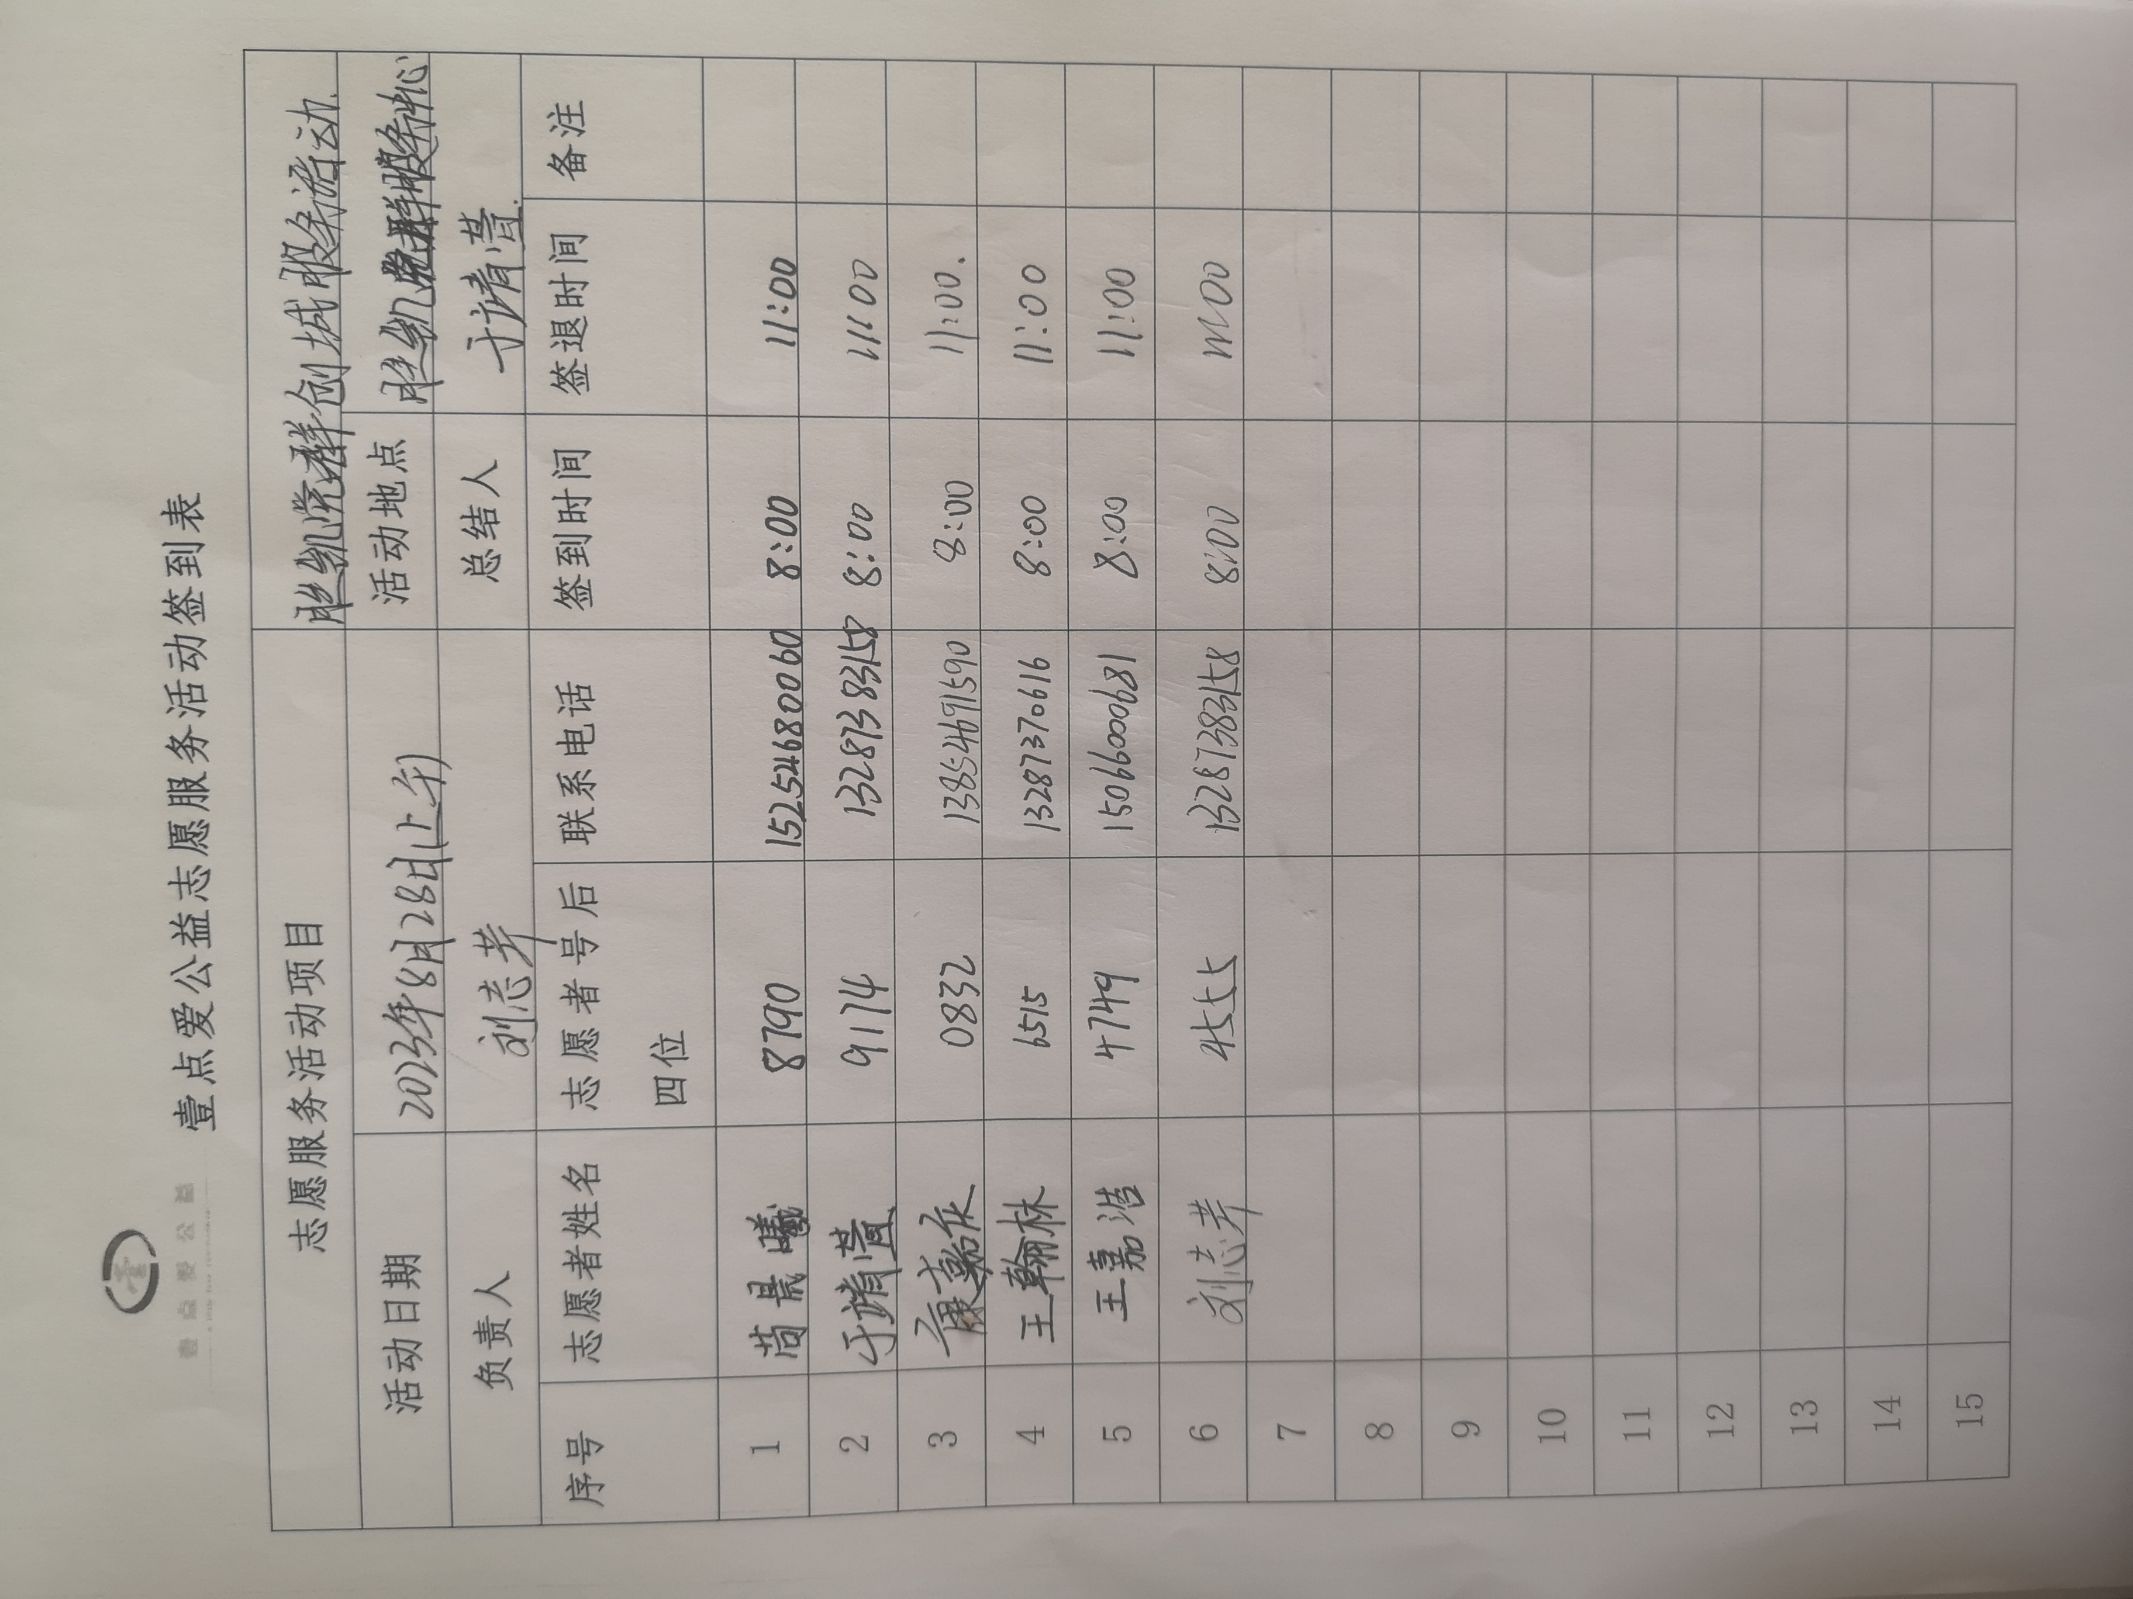 壹点爱公益
壹点爱公益志愿服务活动签到表
志愿服务活动项目 胜凯党群创城服务活动.
活动日期 2023年8月28日(上午) 活动地点 胜凯党群服务中心
负责人 刘志芳 总结人 于靖萱.
序号 志愿者姓名 志愿者号后四位 联系电话 签到时间 签退时间 备注
1 苘晨曦 8790 15254680060 8:00 11:00
2 于靖萱 9174 13287383158 8:00 11:00
3 康嘉庆 0832 13854691590 8:00 11:00.
4 王翰林 6515 13287370616 8:00 11:00
5 王嘉浩 4749 15066000681 8:00 11:00
6 刘志芳 4555 13287383158 8:00 11:00
7
8
9
10
11
12
13
14
15